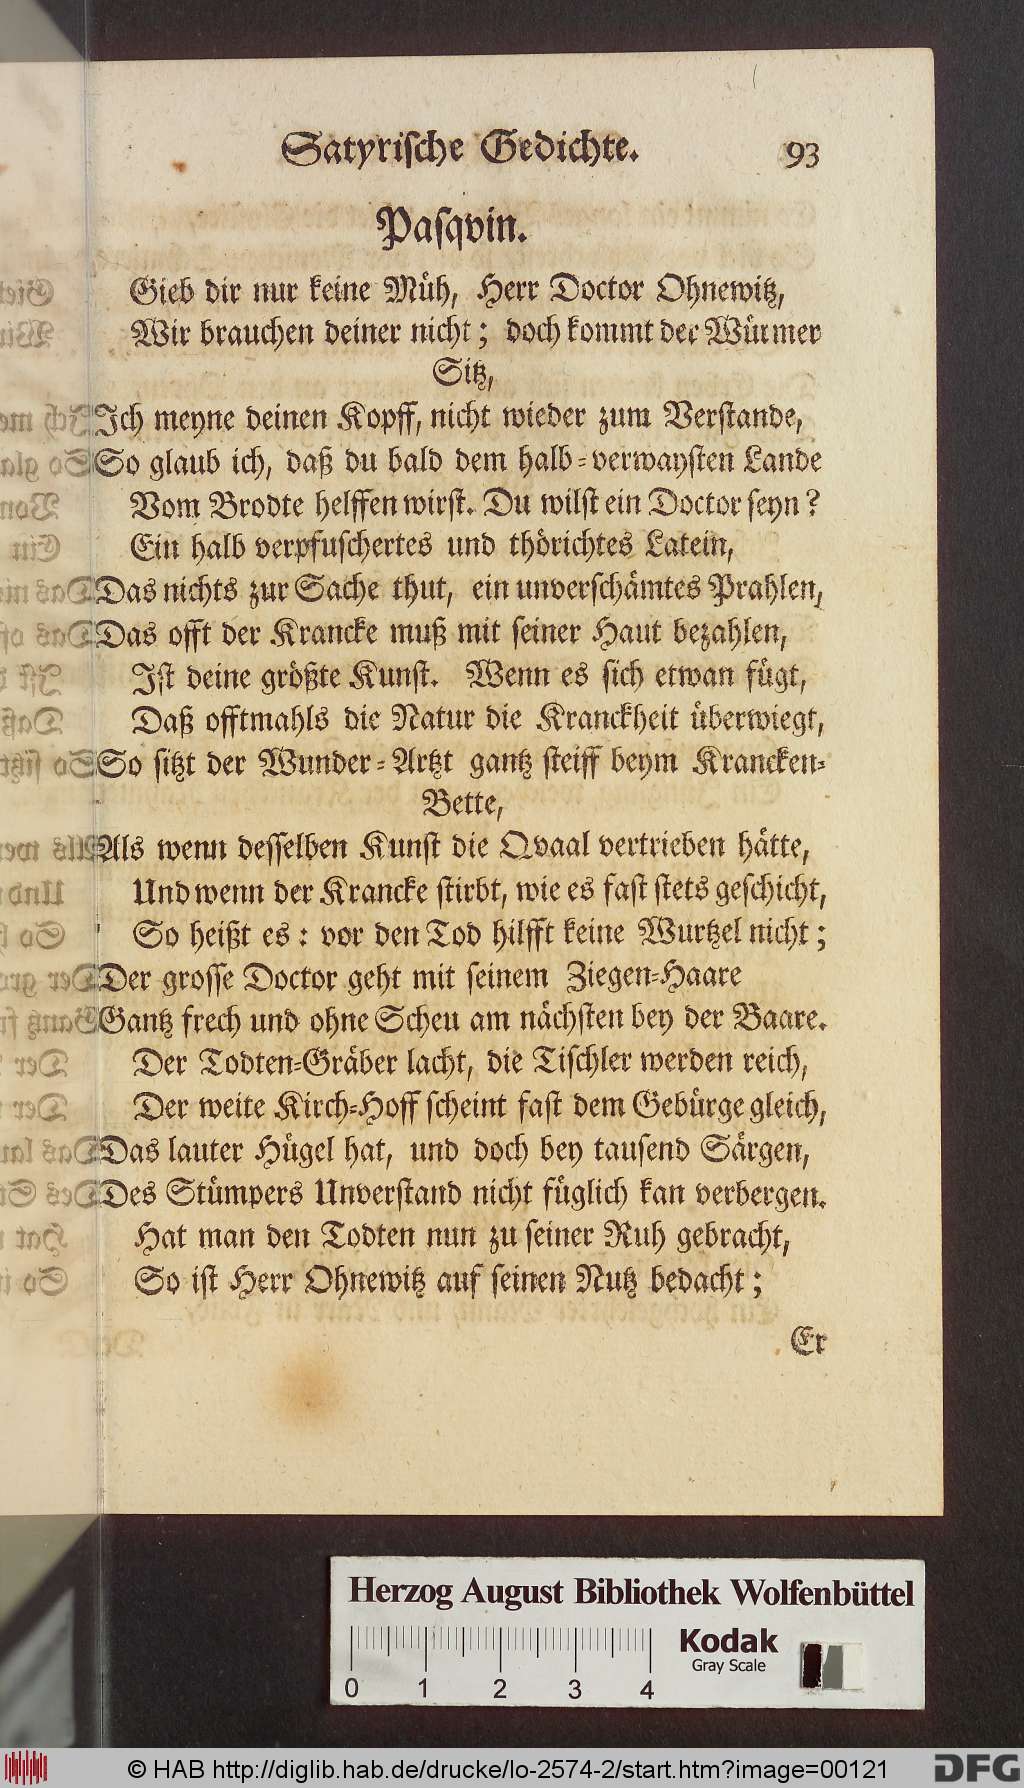 Satyrische Gedichte. 93
Pasqvin.
Gieb dir nur keine Müh, Herr Doctor Ohnewitz,
Wir brauchen deiner nicht; doch kommt der Würmer
Sitz,
Ich meyne deinen Kopff, nicht wieder zum Verstande,
So glaub ich, daß du bald dem halb-verwaysten Lande
Vom Brodte helffen wirst. Du wilst ein Doctor seyn?
Ein halb verpfuschertes und thörichtes Latein,
Das nichts zur Sache thut, ein unverschämtes Prahlen,
Das offt der Krancke muß mit seiner Haut bezahlen,
Ist deine größte Kunst. Wenn es sich etwan fügt,
Daß offtmahls die Natur die Kranckheit überwiegt,
So sitzt der Wunder-Artzt gantz steiff beym Krancken-
Bette,
Als wenn desselben Kunst die Qvaal vertrieben hätte,
Und wenn der Krancke stirbt, wie es fast stets geschicht,
So heißt es: vor den Tod hilfft keine Wurtzel nicht;
Der grosse Doctor geht mit seinem Ziegen-Haare
Gantz frech und ohne Scheu am nächsten bey der Baare.
Der Todten-Gräber lacht, die Tischler werden reich,
Der weite Kirch-Hoff scheint fast dem Gebürge gleich,
Das lauter Hügel hat, und doch bey tausend Särgen,
Des Stümpers Unverstand nicht füglich kan verbergen.
Hat man den Todten nun zu seiner Ruh gebracht,
So ist Herr Ohnewitz auf seinen Nutz bedacht;
Er
Herzog August Bibliothek Wolfenbüttel
Kodak
Gray Scale
0 1 2 3 4
© HAB http://diglib.hab.de/drucke/lo-2574-2/start.htm?image=00121
DFG